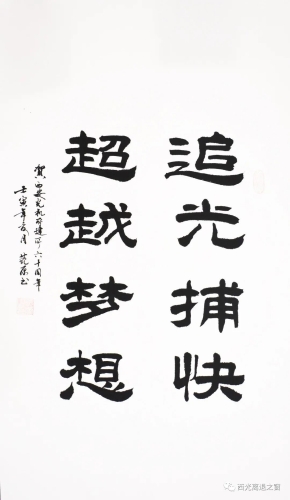 追光捕快
超越梦想
贺西安光机所建所六十周年
壬寅年夏月 范孫书
西光离退之窗